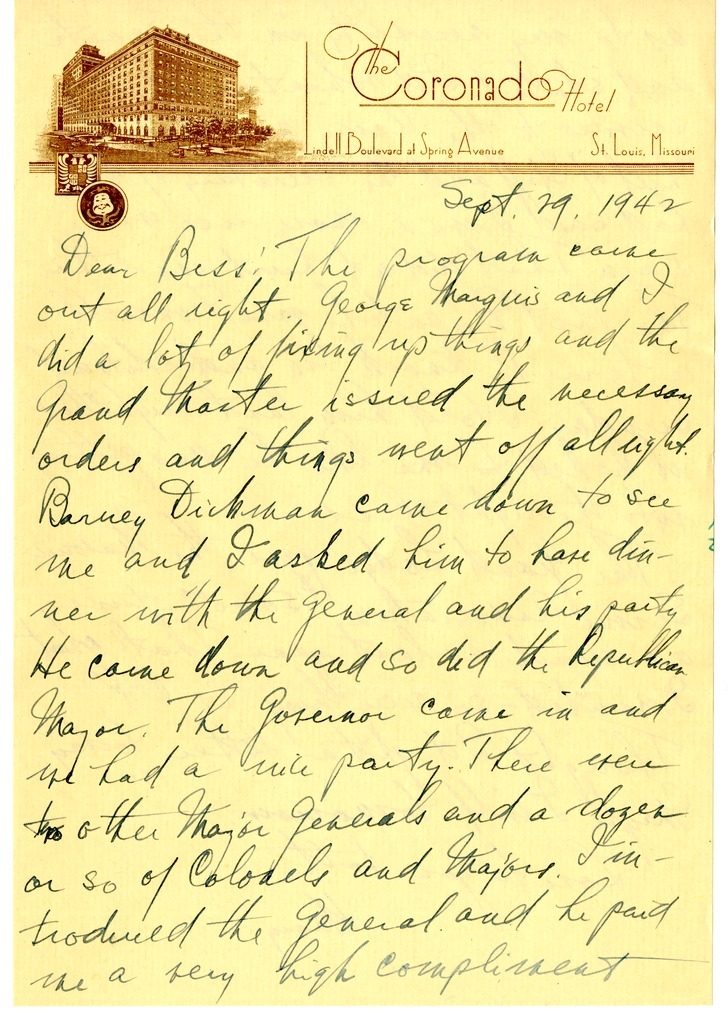 The Coronado Hotel
Lindell Boulevard at Spring Avenue St. Louis, Missouri
Sept. 29, 1942
Dear Bess: The program came
out all right. George Marquis and I
did a lot of fixing up things and the
Grand Master issued the necessary
orders and things went off all right.
Barney Dickman came down to see
me and I asked him to have din-
ner with the General and his party
He came down and so did the Republican
Mayor. The Governor came in and
we had a nice party. There were
two other Major Generals and a dozen
or so of Colonels and Majors. I in-
troduced the General and he paid
me a very high compliment